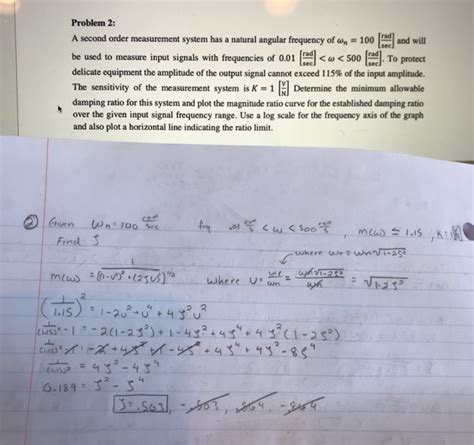 Problem 2:
A second order measurement system has a natural angular frequency of ωn = 100 [rad/sec] and will
be used to measure input signals with frequencies of 0.01 [rad/sec] < ω < 500 [rad/sec]. To protect
delicate equipment the amplitude of the output signal cannot exceed 115% of the input amplitude.
The sensitivity of the measurement system is K = 1 [V/N] Determine the minimum allowable
damping ratio for this system and plot the magnitude ratio curve for the established damping ratio
over the given input signal frequency range. Use a log scale for the frequency axis of the graph
and also plot a horizontal line indicating the ratio limit.
② Given ωn = 100 rad/sec freq .01 rad/s < ω < 500 rad/s , m(ω) ≤ 1.15 , K = 1
Find ζ
where ωr = ωn√1-2ζ²
m(ω) = 1/[(1-U²)² + (2ζU)²]^1/2 where U = ωr/ωn = ωn√1-2ζ²/ωn = √1-2ζ²
(1/1.15)² = 1-2U²+U⁴ + 4ζ²U²
1/(1.15)² - 1 = -2(1-2ζ²) + 1-4ζ²+4ζ⁴ + 4ζ²(1-2ζ²)
1/(1.15)² - 1 = -2 + 4ζ² + 1 - 4ζ² + 4ζ⁴ + 4ζ² - 8ζ⁴
1/(1.15)² = 4ζ² - 4ζ⁴
0.189 = ζ² - ζ⁴
ζ = .503, -.503, .864, -.864